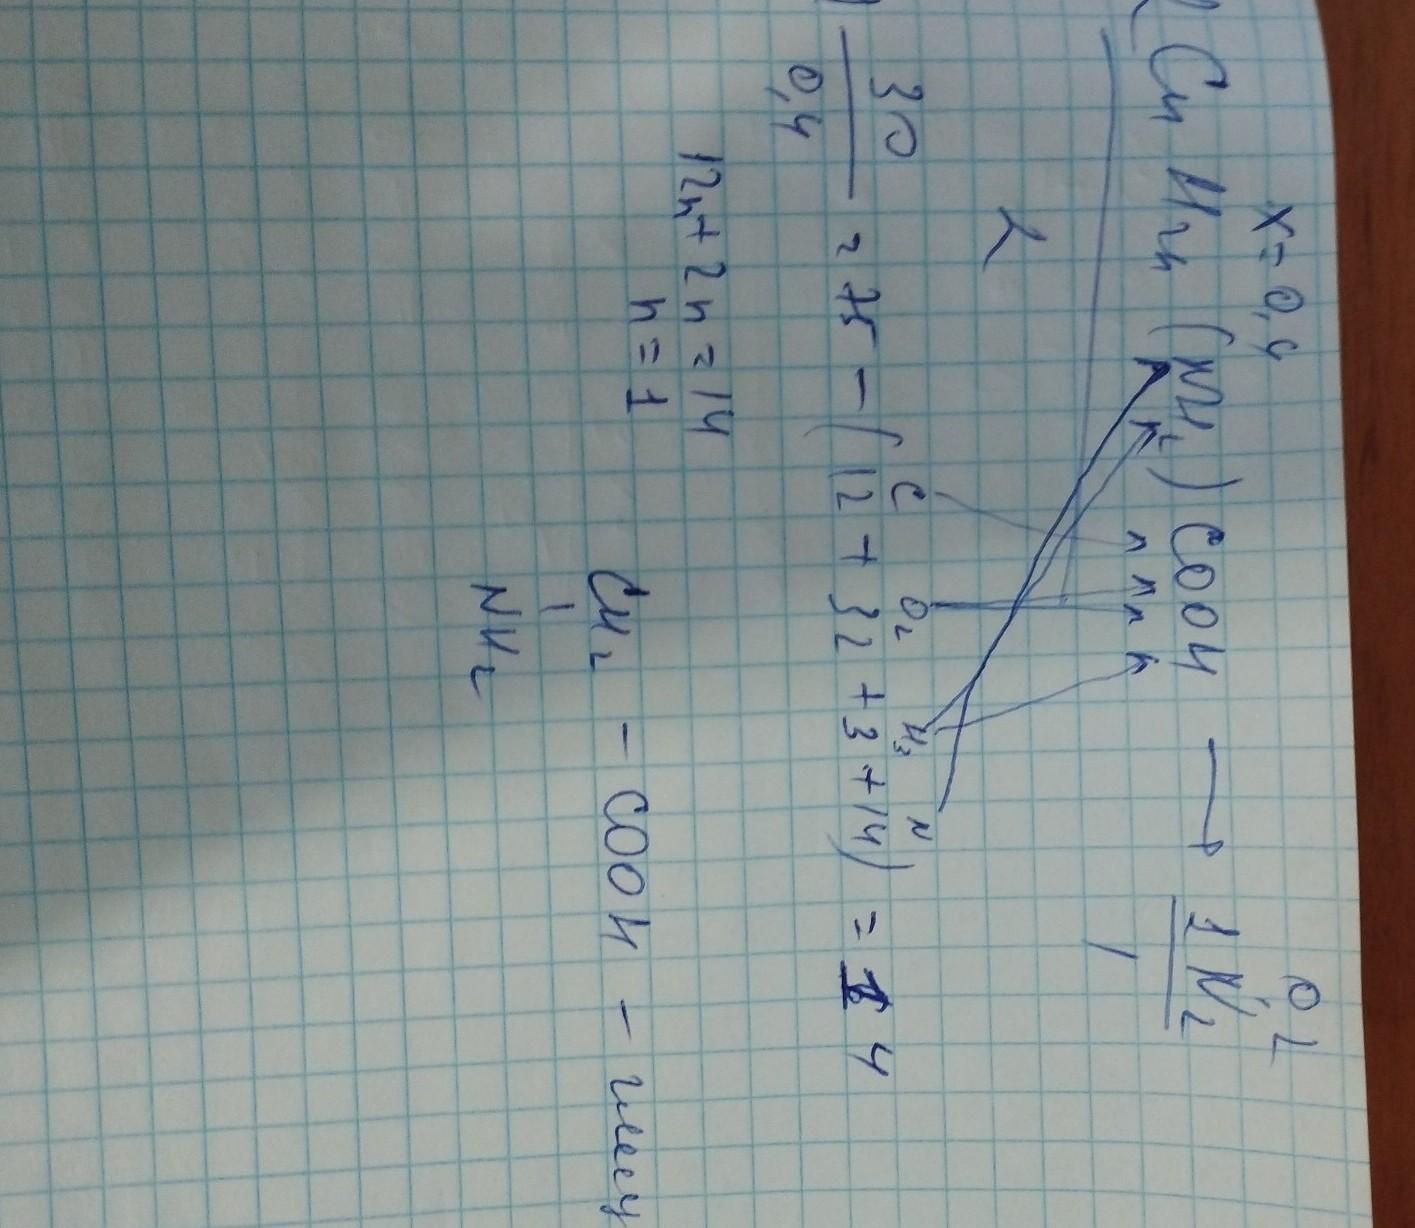 x = 0,4
0,2
2 CnH2n (NH2) COOH → 1 N2
2
1
C O2 H3 N
30
0,4
= 75 - (12 + 32 + 3 + 14) = 14
12n + 2n = 14
n = 1
CH2 - COOH -
|
NH2